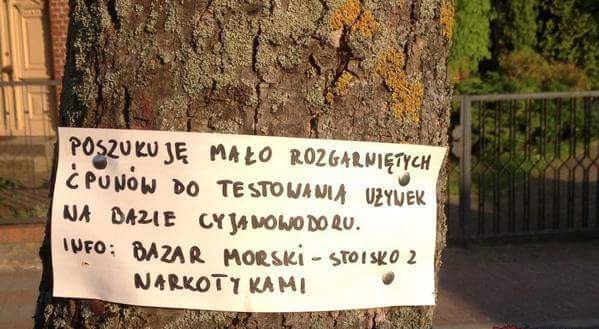 POSZUKUJĘ MAŁO ROZGARNIĘTYCH
ĆPUNÓW DO TESTOWANIA UŻYWEK
NA BAZIE CYJANOWODORU.
INFO: BAZAR MORSKI - STOISKO Z
NARKOTYKAMI